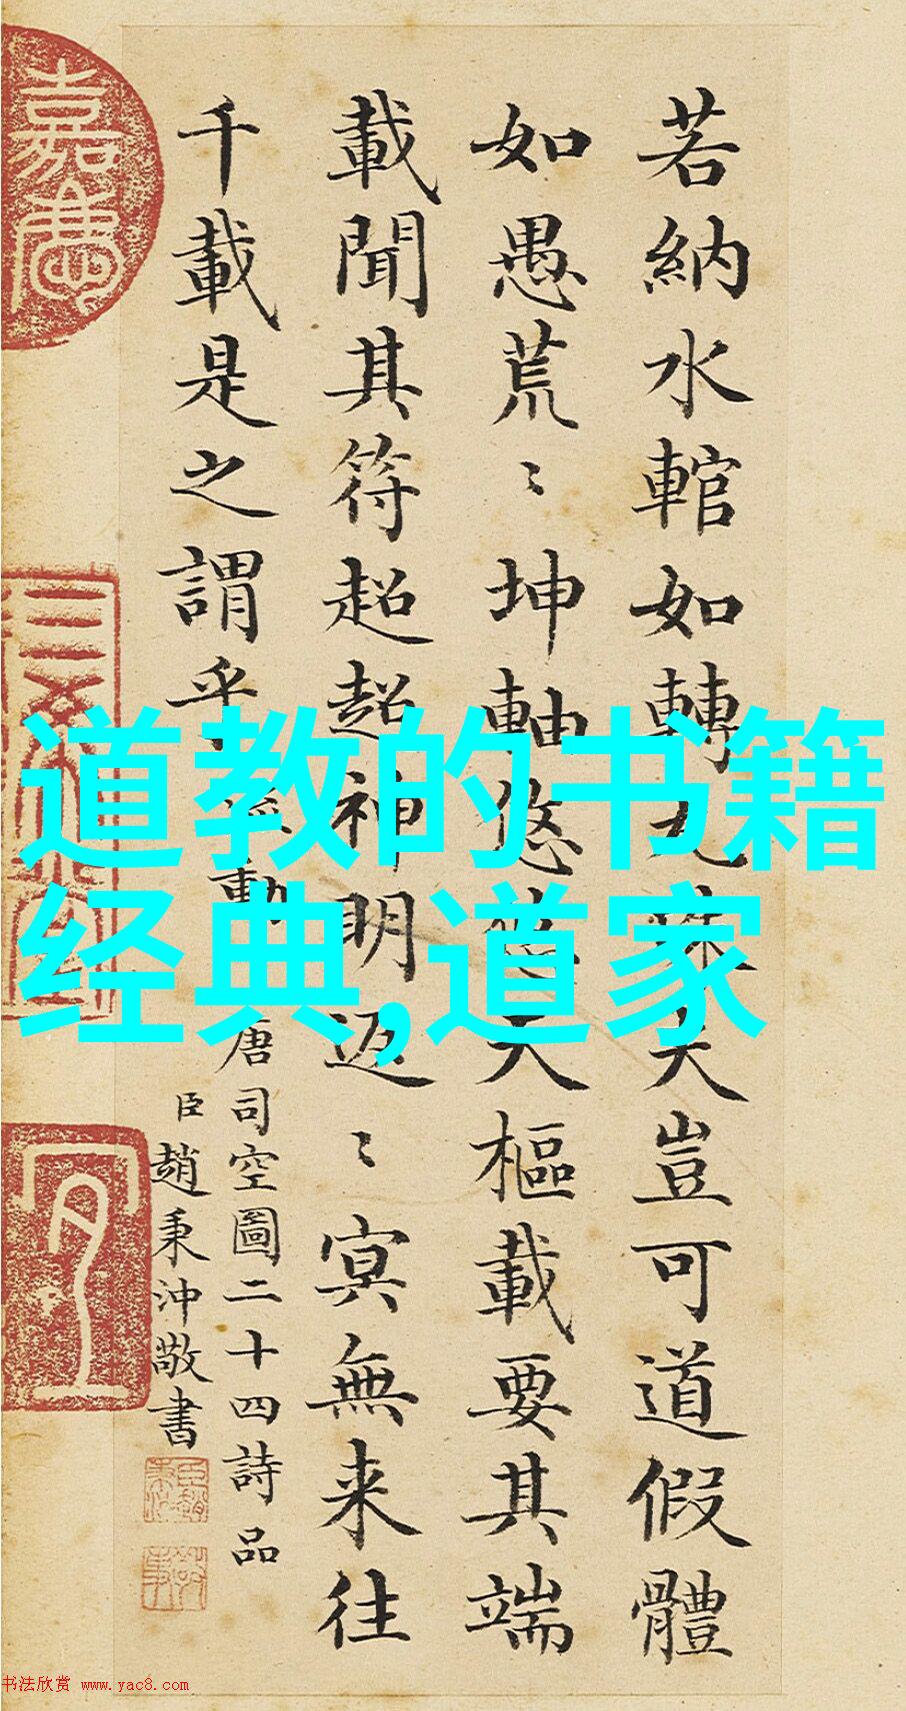 若納水輨如轉丸珠夫豈可道假體
如愚荒〻坤軸悠悠天樞載要其端
載聞其符超超神明返〻冥無来往
千載是之謂乎
動
唐司空圖二十四詩品
臣趙秉沖敬書
嘉慶
道教的书籍
经典,道家
书法欣赏 www.yac8.com